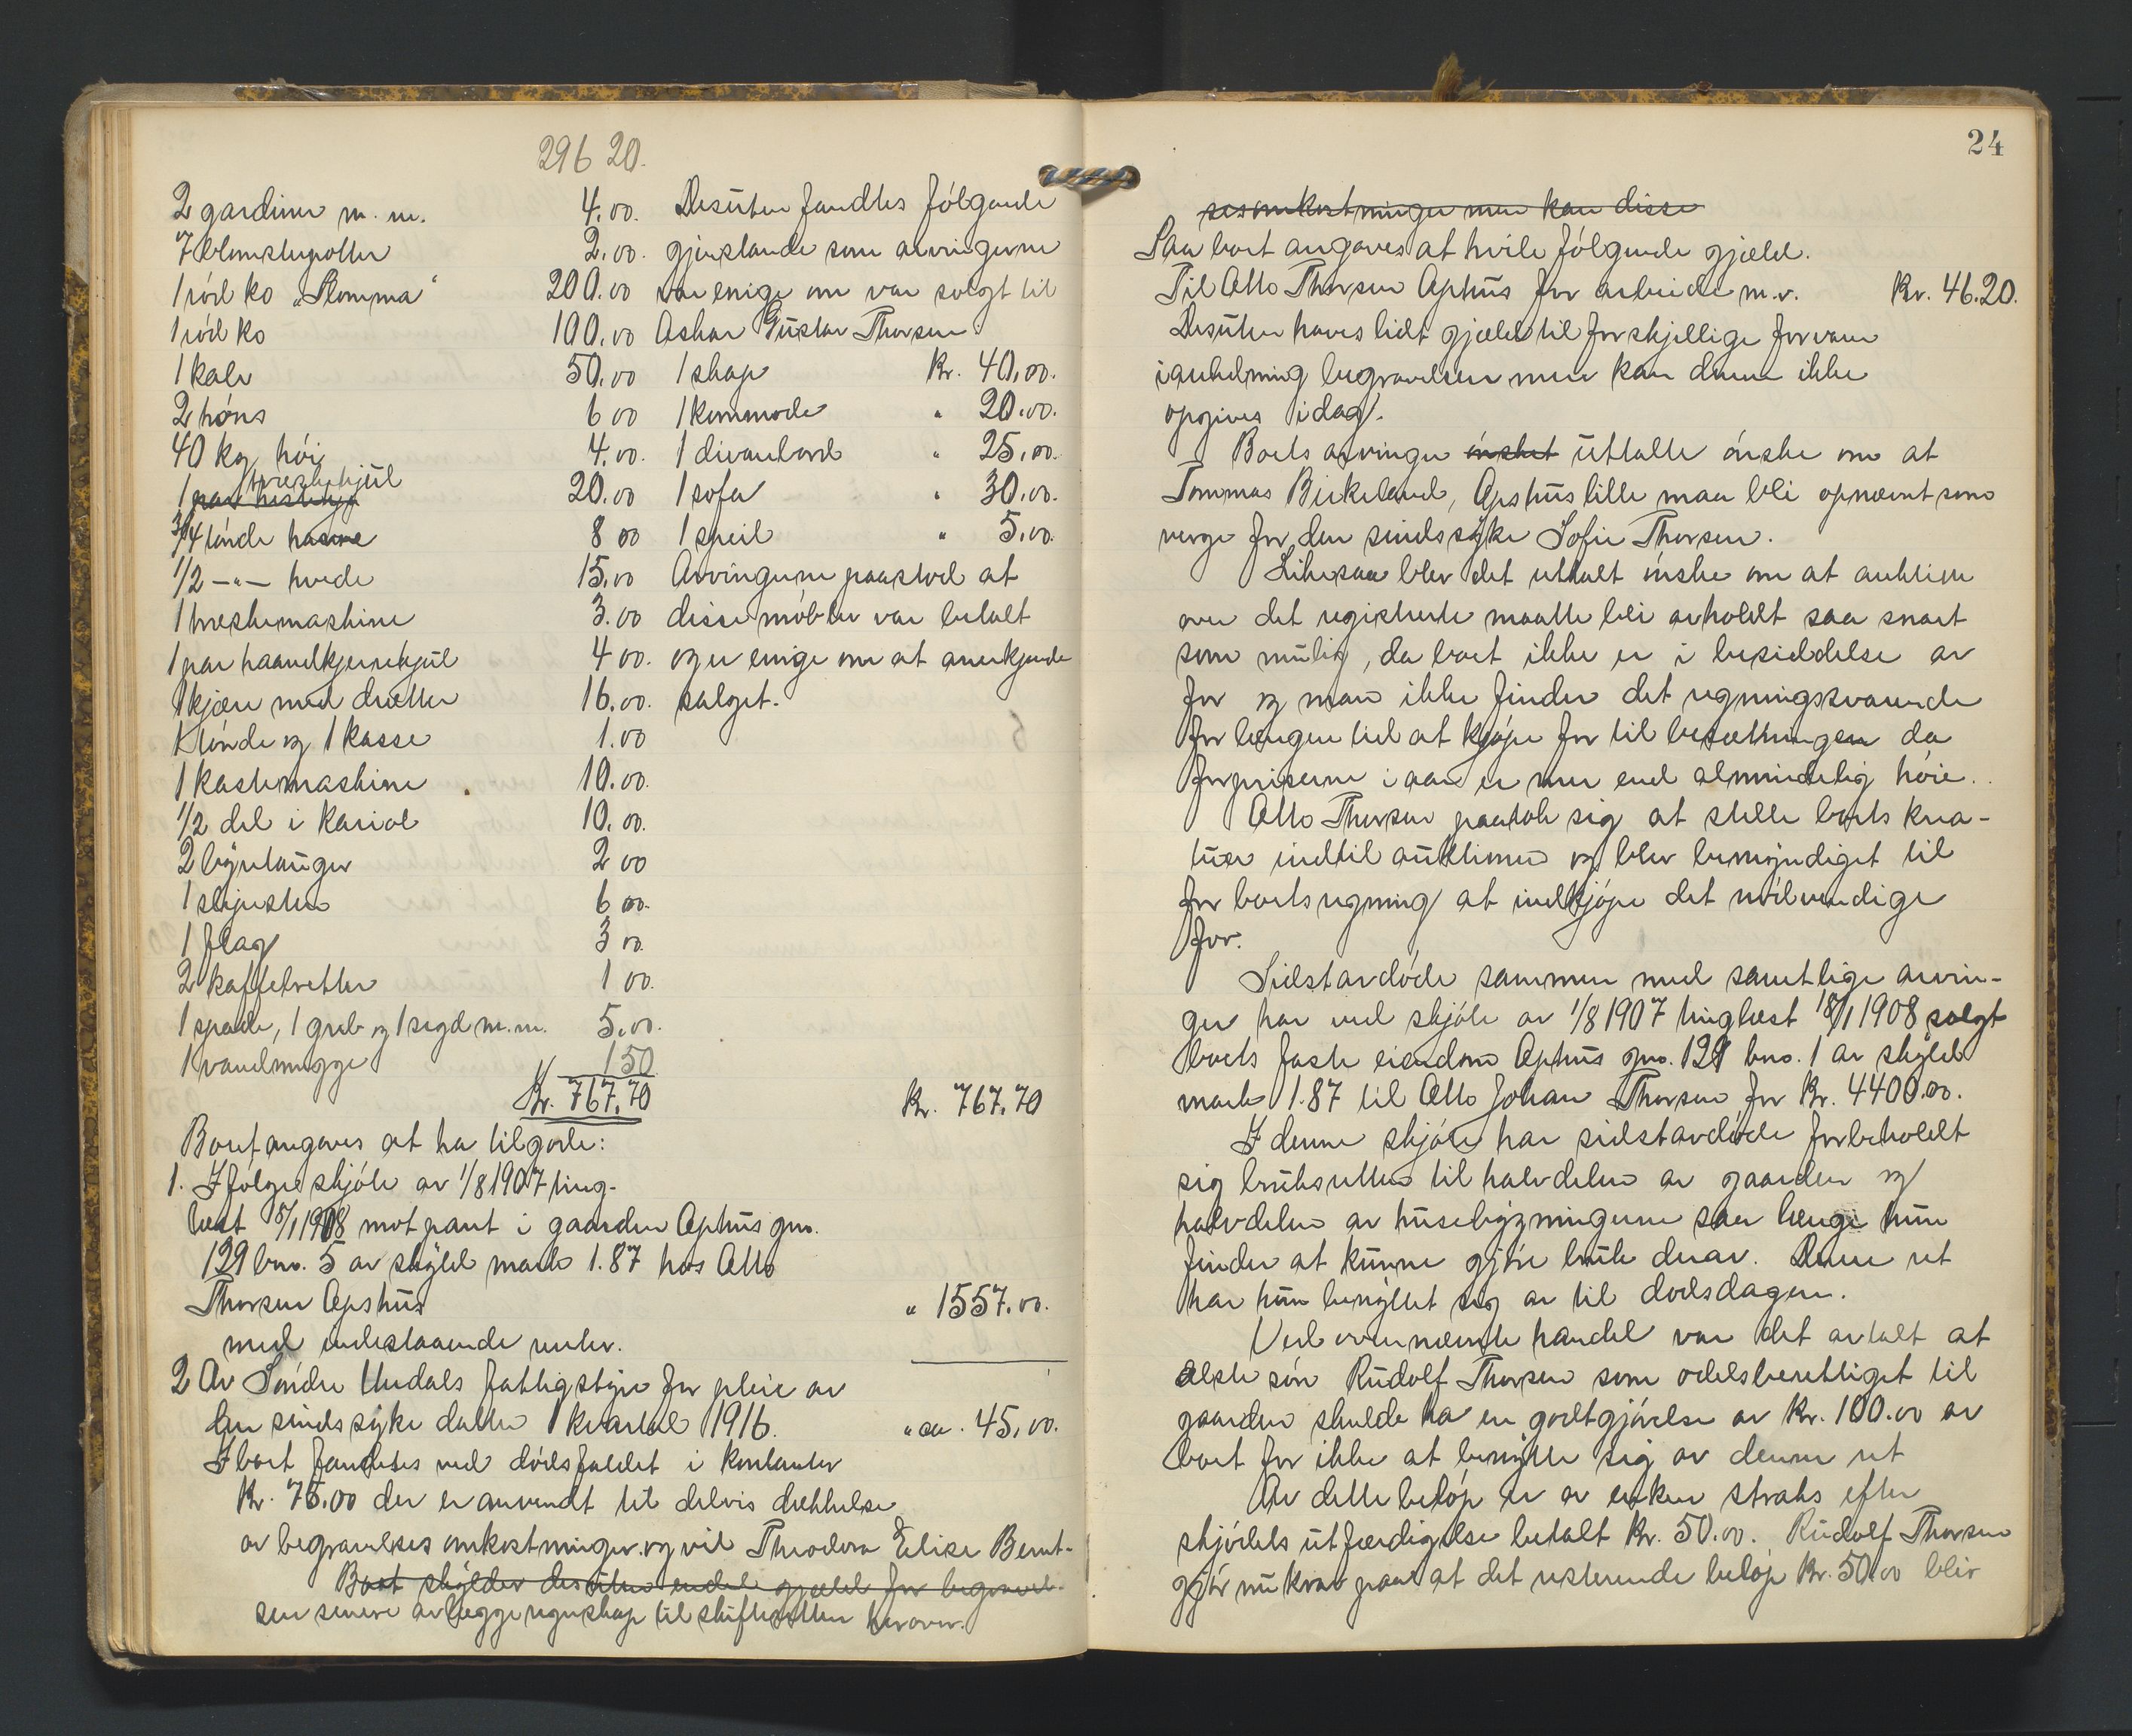 296 20.
2 gardiner m. m. 4.00.
7 blomsterpotter 2.00.
1 röd ko „Plomma“ 200.00
1 röd ko 100.00
1 kalv 50.00
2 höns 6 00
40 kg höi 4.00.
1 par treskehjul 20.00
3/4 tönde havre 8 00
1/2 –"– hvede 15.00
1 treskemaskine 3.00
1 par haandkjerrehjul 4 00.
1 kjerre med drætter 16.00.
1 tönde og 1 kasse 1.00
1 kastemaskine 10.00.
1/2 del i kariol 10.00.
2 byrtauger 2 00
1 slipesten 6 00.
1 plog 3 00.
2 kaffetretter 1 00.
1 spade, 1 greb og 1 segd m. m. 5.00.
1 vandmugge 1 50
Kr. 767.70 Kr. 767.70
Desuten fandtes fölgende
gjenstande som arvingerne
var enige om var solgt til
Askar Gustav Thorsen:
1 skap Kr. 40.00.
1 kommode " 20.00.
1 divanbord " 25.00.
1 sofa " 30.00.
1 speil " 5.00.
Arvingerne paastod at
disse möbler var betalt
og er enige om at anerkjende
salget.
Boet angaves at ha tilgode:
1. Ifölge skjöte av 1/8 1907 ting-
læst 18/1 1908 mot pant i gaarden Aphus gno.
129 bno. 5 av skyld mark 1.87 hos Otto
Thorsen Apshus " 1557.00.
med indestaaende renter.
2 Av Söndre Undals fattigstyre for pleie av
den sindssyke datter 1 kvartal 1916. " ca. 45.00.
I boet fandtes ved dödsfaldet i kontanter
Kr. 75.00 der er anvendt til delvis dækkelse
av begravelsesomkostninger. og vil Theodora Elise Bernt-
Boet skylder desuten endel gjæld for begravel-
sen senere avlægge regnskap til skifteretten herover.
24
sesomkostninger men kan disse
Paa boet angaves at hvile fölgende gjæld.
Til Otto Thorsen Aphus for arbeide m. v. Kr. 46.20.
Desuten haves lidt gjæld til forskjellige for varer
i anledning begravelsen men kan denne ikke
opgives idag.
Boets arvinger önsket uttalte önske om at
Tommas Birkeland, Apshus lille maa bli opnævnt som
verge for den sindssyke Sofie Thorsen.
Likesaa blev det uttalt önske om at auktion
over det registrerte maatte bli avholdt saa snart
som mulig, da boet ikke er i besiddelse av
for og man ikke finder det regningssvarende
for længere tid at kjöpe for til besætningen da
forpriserne i aar er mer end almindelig höie.
Otto Thorsen paatok sig at stelle boets krea-
turer indtil auktionen og blev bemyndiget til
for boets regning at indkjöpe det nödvendige
for.
Sidstavdöde sammen med samtlige arvin-
ger har ved skjöte av 1/8 1907 tinglæst 18/1 1908 solgt
boets faste eiendom Aphus gno. 129 bno. 1 av skyld
mark 1.87 til Otto Johan Thorsen for Kr. 4400.00.
I denne skjöte har sidstavdöde forbeholdt
sig bruksretten til halvdelen av gaarden og
halvdelen av husebygningerne saa længe hun
finder at kunne gjöre bruk derav. Denne ret
har hun benyttet sig av til dödsdagen.
Ved ovennævnte handel var det avtalt at
ælste sön Rudolf Thorsen som odelsberettiget til
gaarden skulde ha en godtgjörelse av Kr. 100.00 av
boet for ikke at benytte sig av denne ret
Av dette belöp er av enken straks efter
skjödets utfærdigelse betalt Kr. 50.00. Rudolf Thorsen
gjör nu krav paa at det resterende belöp Kr. 50.00 blir